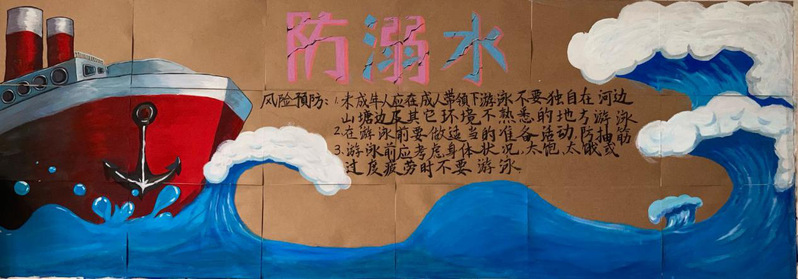 防溺水
风险预防：1.未成年人应在成人带领下游泳不要独自在河边
山塘边及其它环境不熟悉的地方游泳
2.在游泳前要做适当的准备活动,防抽筋
3.游泳前应考虑身体状况,太饱,太饿或
过度疲劳时不要游泳